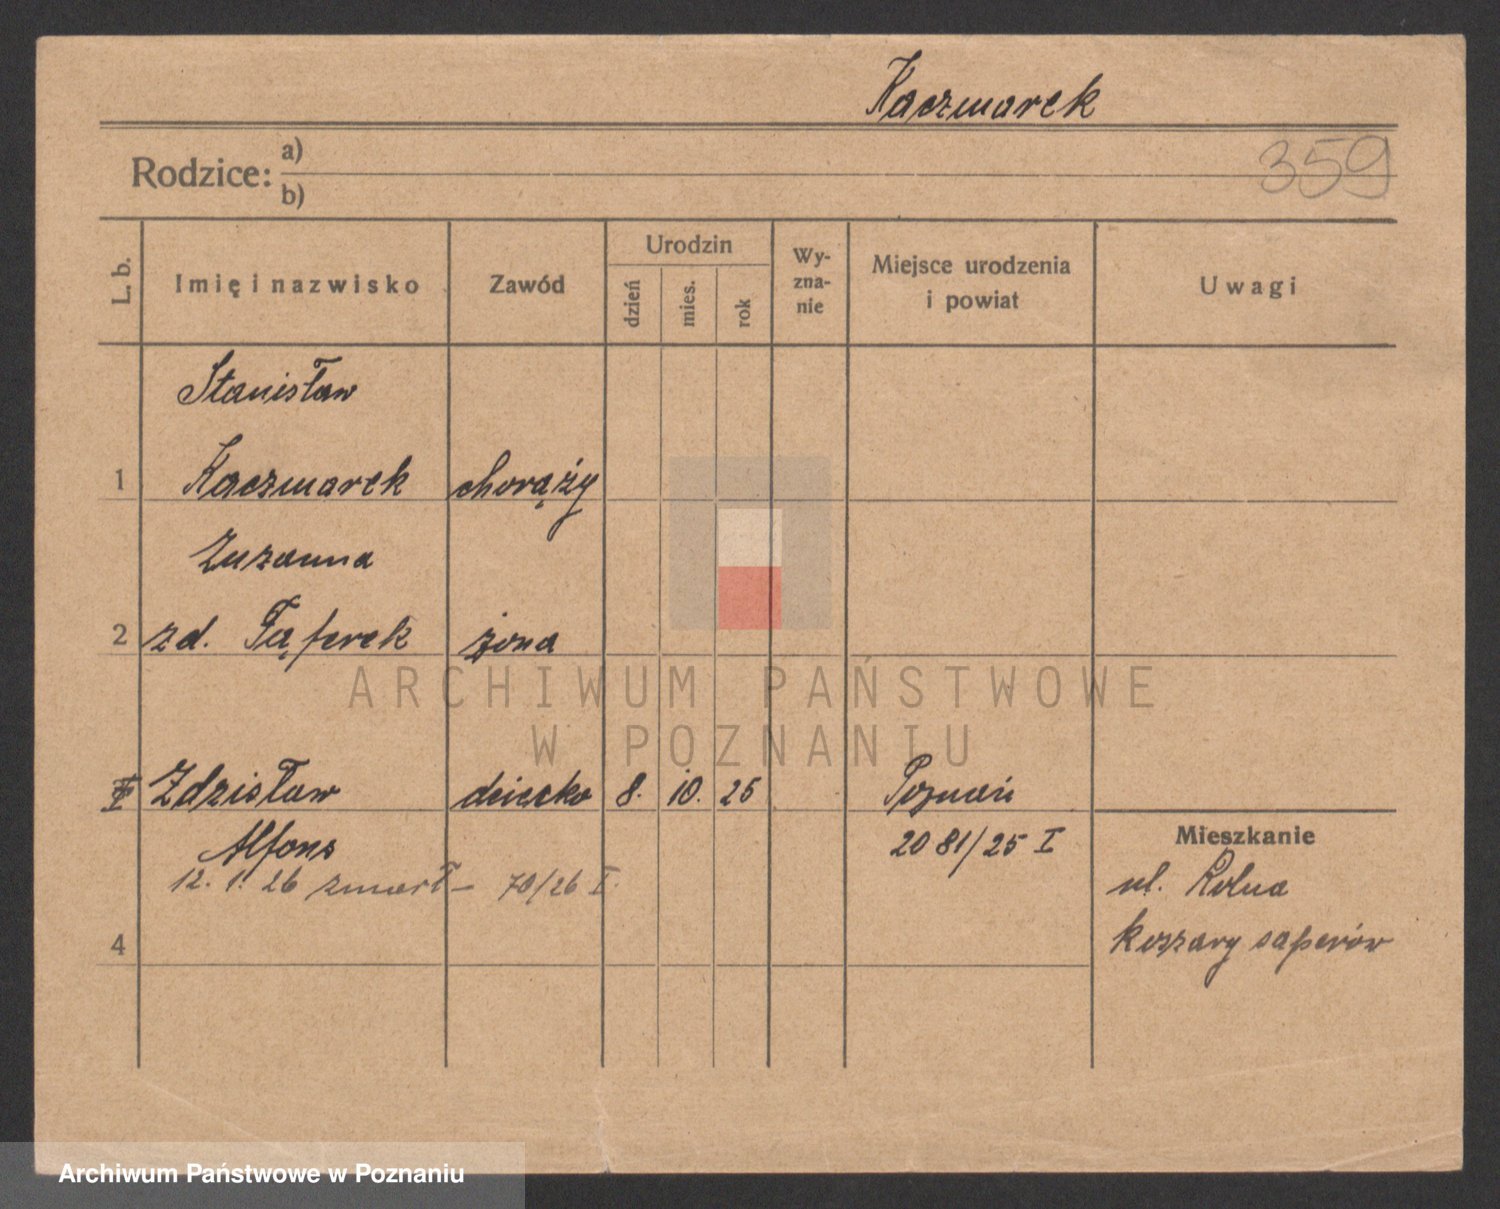 Kaczmarek
359
Rodzice: a)
b)
L. b.
Imię i nazwisko
Zawód
Urodzin
dzień
mies.
rok
Wy-
zna-
nie
Miejsce urodzenia
i powiat
Uwagi
Stanisław
1 Kaczmarek chorąży
Zuzanna
2 zd. żona
Zdzisław dziecko 8. 10. 25 Poznań
Alfons 2081/25 I
12. 1. 26 zmarł – 70/26 I.
4
Mieszkanie
ul. Rolna
koszary saperów
ARCHIWUM PAŃSTWOWE
W POZNANIU
Archiwum Państwowe w Poznaniu